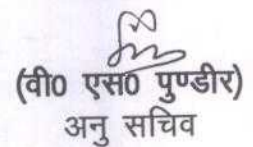 (वी0 एस0 पुण्डीर)
अनु सचिव